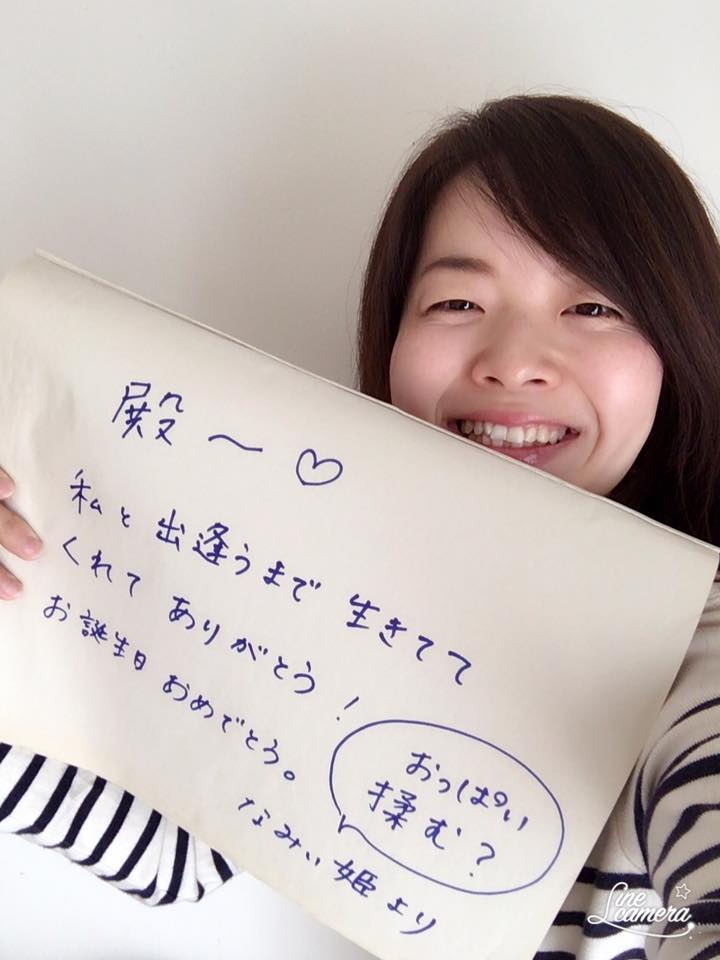 殿〜♡
私と出逢うまで生きてて
くれてありがとう!
お誕生日おめでとう。
おっぱい
揉む?
なみぃ姫より
Line
camera